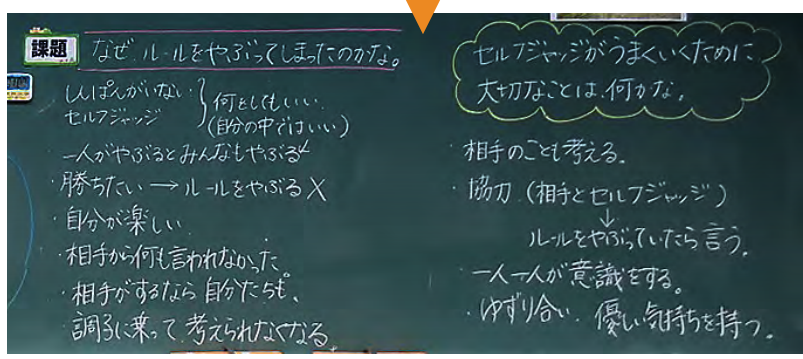 課題 なぜ ルールをやぶってしまったのかな。
しんぱんがいない
セルフジャッジ
何をしてもいい
(自分の中ではいい)
一人がやぶるとみんなもやぶる
・勝ちたい → ルールをやぶる X
・自分が楽しい
・相手から何も言われなかった。
・相手がするなら自分たちも、
・調子に乗って考えられなくなる。
セルフジャッジがうまくいくために
大切なことは、何かな。
・相手のことも考える。
・協力 (相手とセルフジャッジ)
↓
ルールをやぶっていたら言う。
・一人一人が意識をする。
・ゆずり合い. 優しい気持ちを持つ。